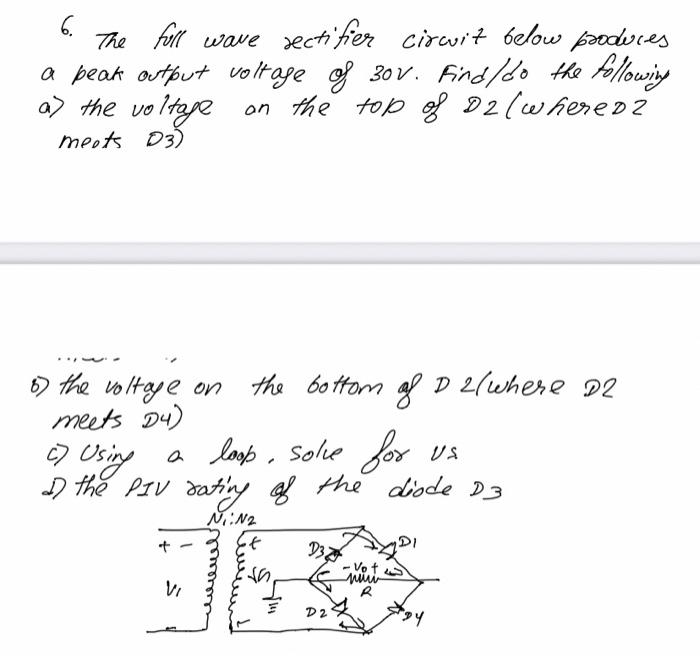 6. The full wave rectifier circuit below produces
a peak output voltage of 30V. Find/do the following
a) the voltage on the top of D2 (where D2
meets D3)
b) the voltage on the bottom of D2 (where D2
meets D4)
c) Using a loop, solve for Vs
d) the PIV rating of the diode D3
N1:N2
+ -
+
D3
D1
- Vo +
V1
R
D2
D4